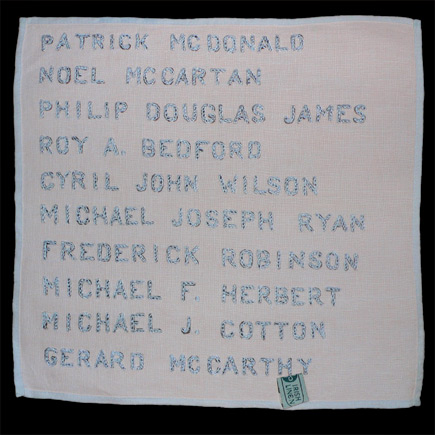 PATRICK MCDONALD
NOEL MCCARTAN
PHILIP DOUGLAS JAMES
ROY A. BEDFORD
CYRIL JOHN WILSON
MICHAEL JOSEPH RYAN
FREDERICK ROBINSON
MICHAEL F. HERBERT
MICHAEL J. COTTON
GERARD MCCARTHY
IRISH
LINEN